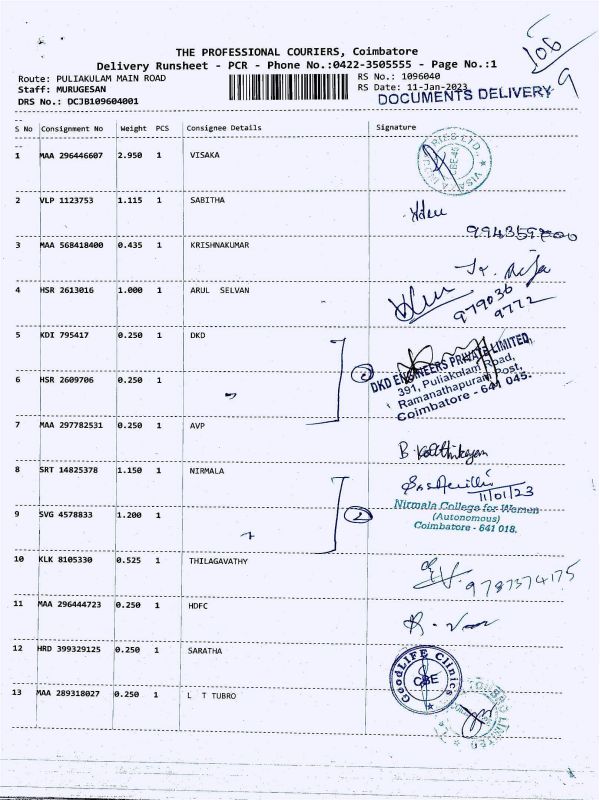 106
9
THE PROFESSIONAL COURIERS, Coimbatore
Delivery Runsheet - PCR - Phone No.:0422-3505555 - Page No.:1
Route: PULIAKULAM MAIN ROAD RS No.: 1096040
Staff: MURUGESAN RS Date: 11-Jan-2023
DRS No.: DCJB109604001 DOCUMENTS DELIVERY
S No Consignment No Weight PCS Consignee Details Signature
1 MAA 296446607 2.950 1 VISAKA
2 VLP 1123753 1.115 1 SABITHA
3 MAA 568418400 0.435 1 KRISHNAKUMAR
4 HSR 2613016 1.000 1 ARUL SELVAN
979036
9772
5 KDI 795417 0.250 1 DKD
DKD ENGINEERS PRIVATE LIMITED,
391, Puliakulam Road,
Ramanathapuram Post,
Coimbatore - 641 045.
6 HSR 2609706 0.250 1
7 MAA 297782531 0.250 1 AVP
B. Karthikeyan
8 SRT 14825378 1.150 1 NIRMALA
11/01/23
Nirmala College for Women
(Autonomous)
Coimbatore - 641 018.
9 SVG 4578833 1.200 1
2
10 KLK 8105330 0.525 1 THILAGAVATHY
9787374175
11 MAA 296444723 0.250 1 HDFC
12 HRD 399329125 0.250 1 SARATHA
GoodLIFE Clinics
CBE
13 MAA 289318027 0.250 1 L T TUBRO